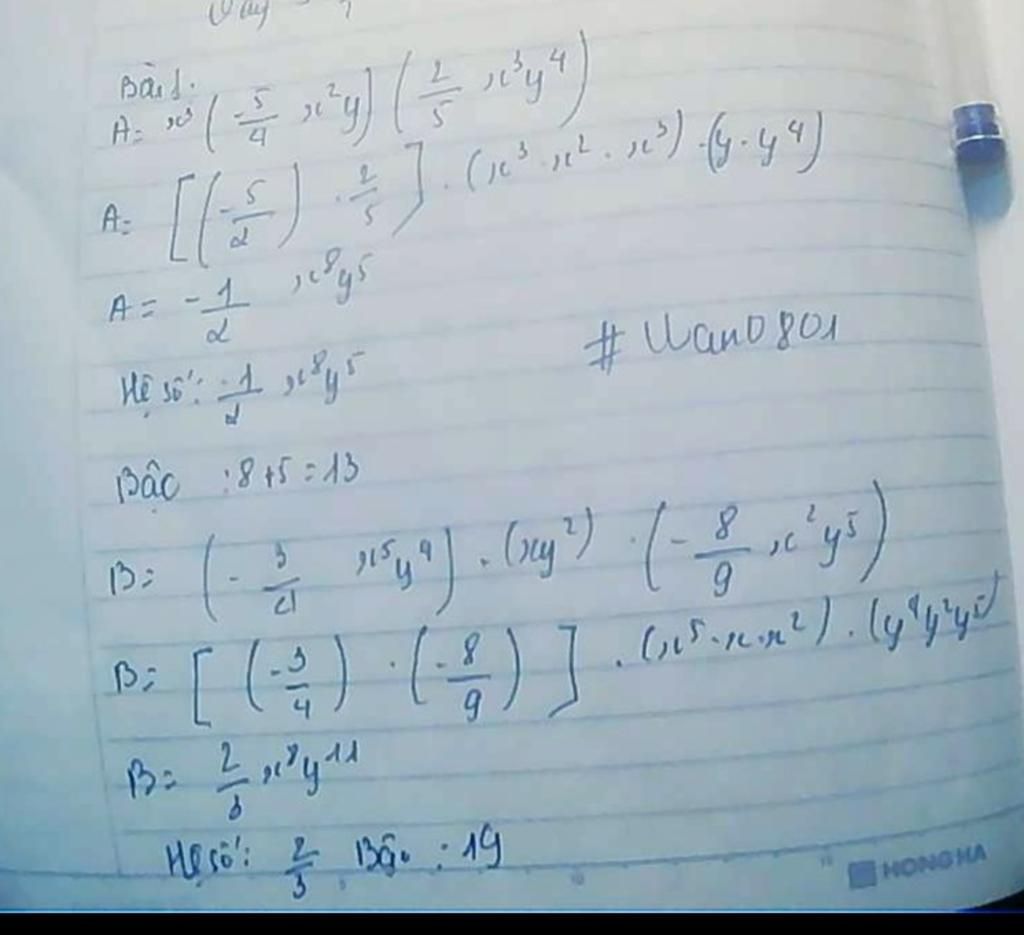 Bài 1.
A = x³ (-5/4 x²y) (2/5 x³y⁴)
A = [(-5/2) · 2/5] · (x³ · x² · x³) · (y · y⁴)
A = -1/2 x⁸y⁵
Hệ số: -1/2 x⁸y⁵
# Uan0801
Bậc : 8 + 5 = 13
B = (-3/4 x⁵y⁴) · (xy²) · (-8/9 x²y⁵)
B = [(-3/4) · (-8/9)] · (x⁵ · x · x²) · (y⁴y²y⁵)
B = 2/3 x⁸y¹¹
Hệ số: 2/3 Bậc : 19
HONG HA